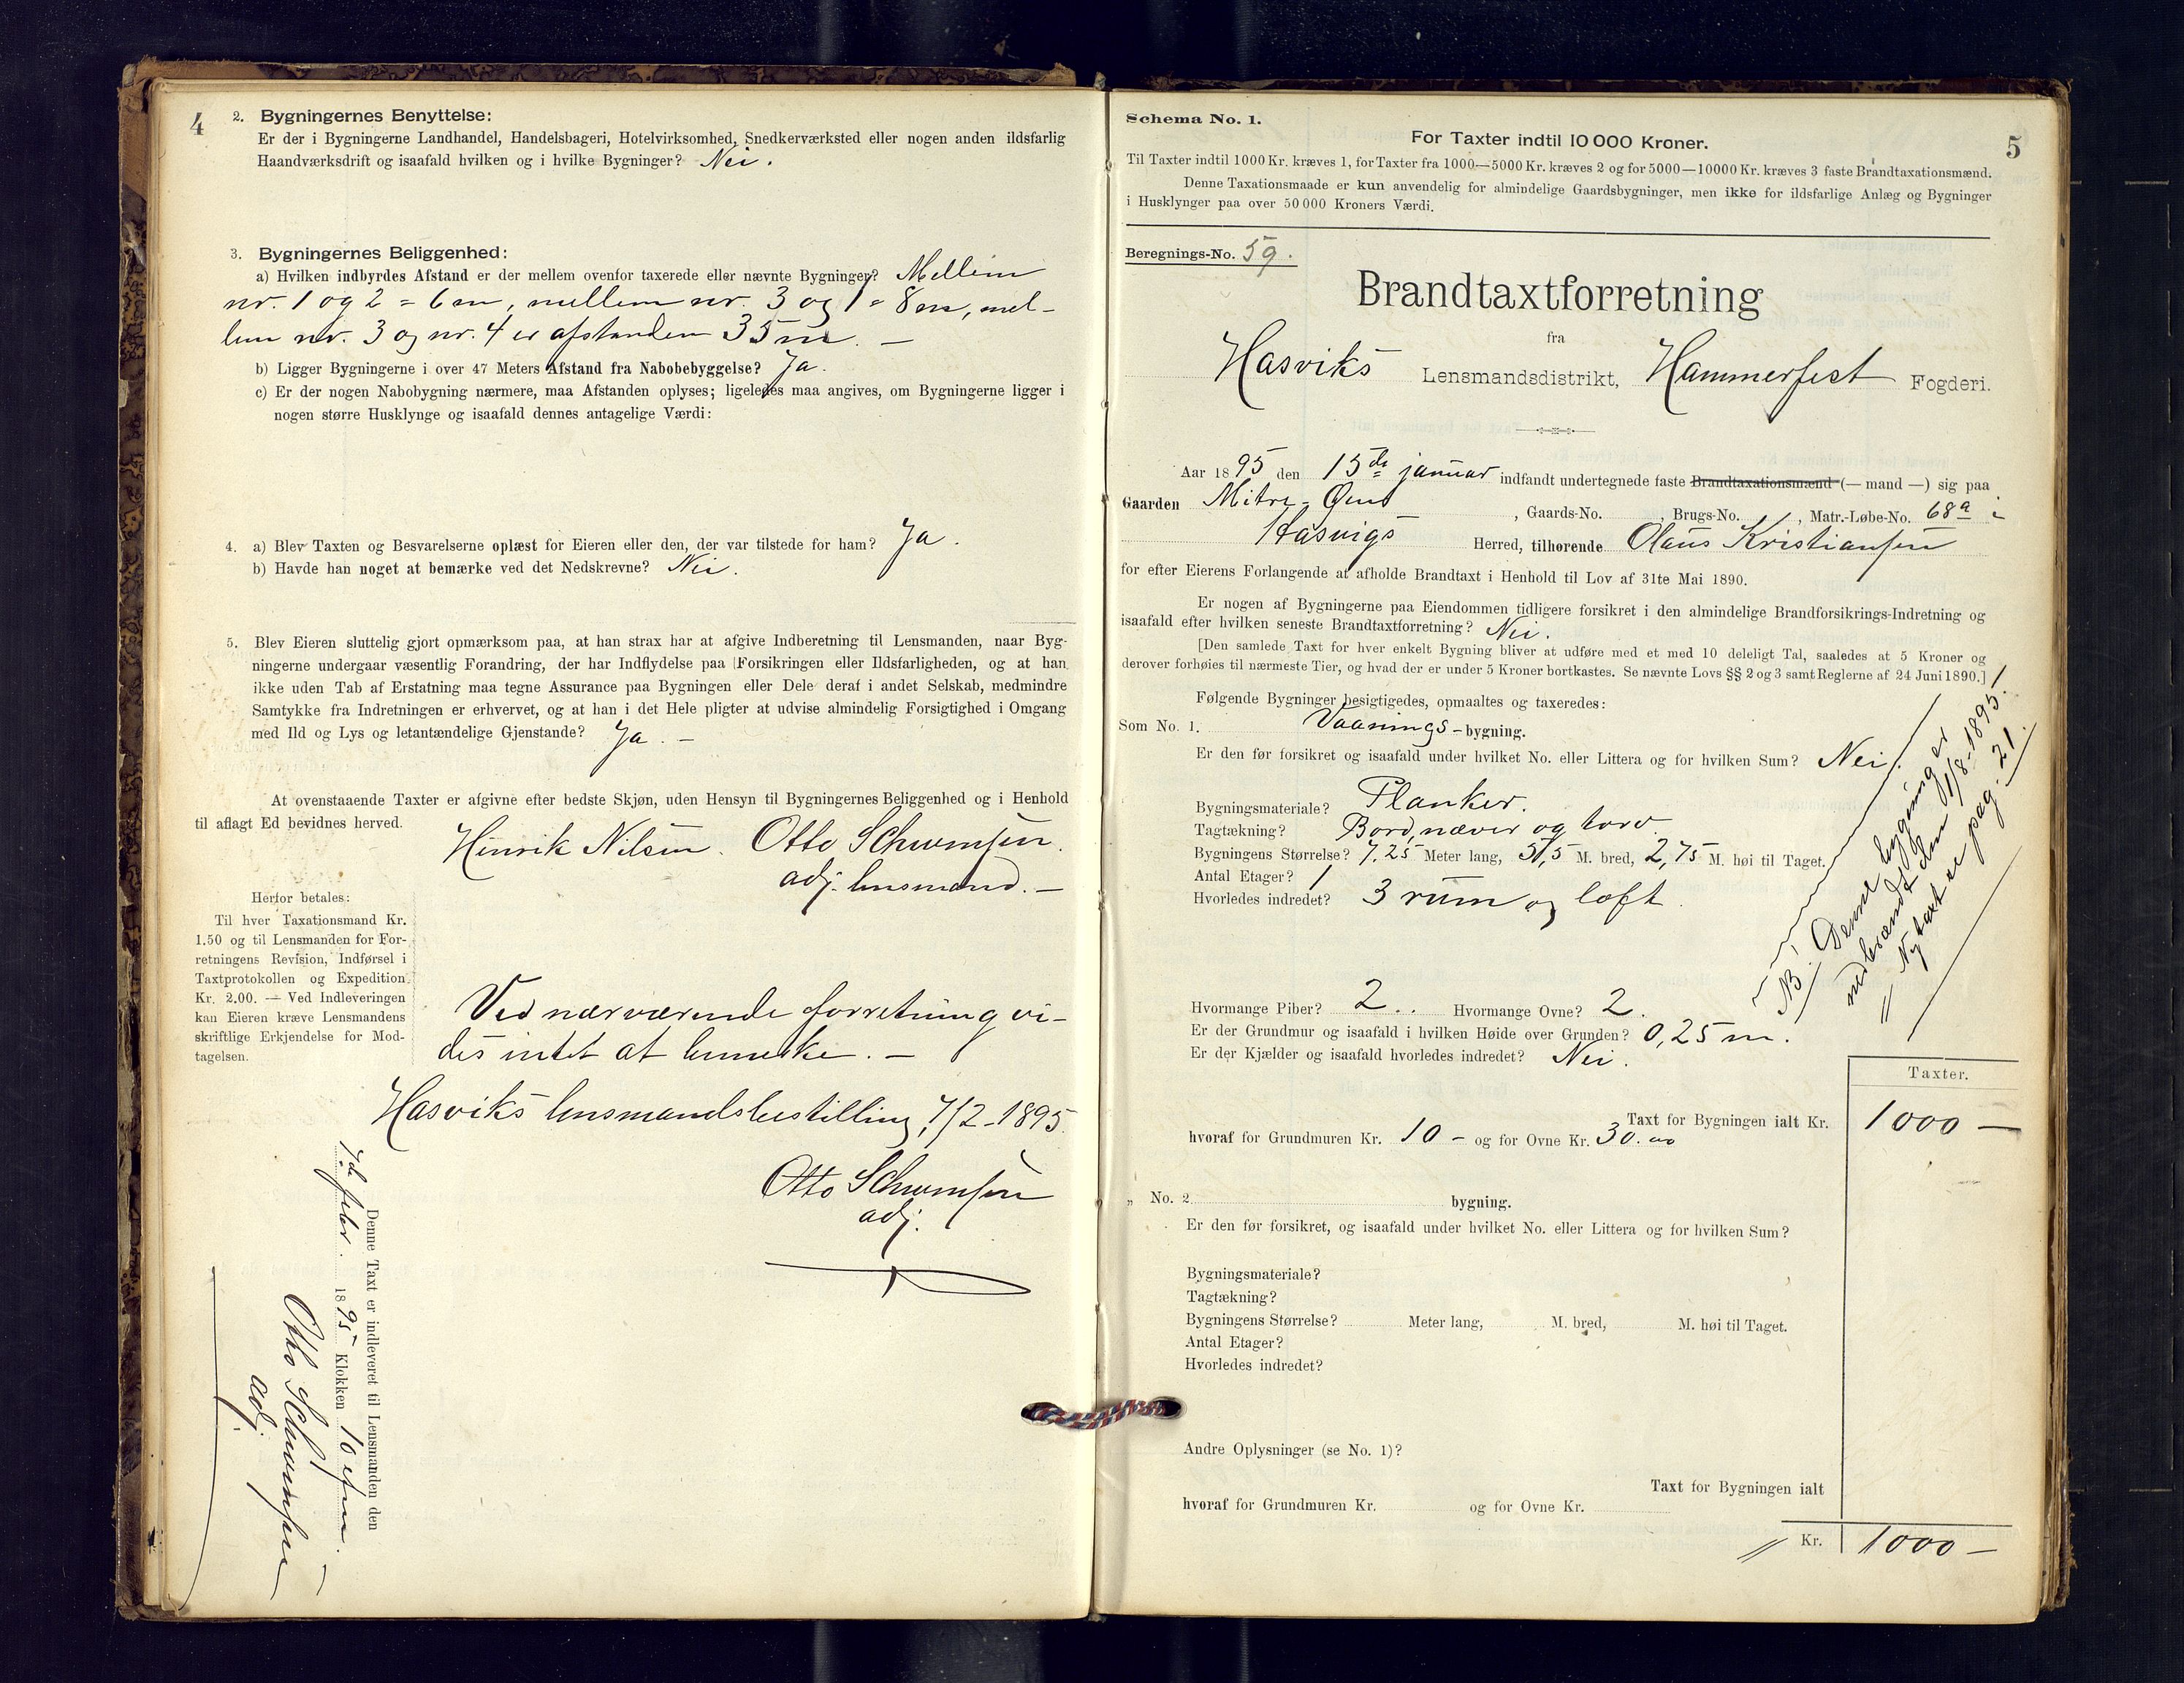 4
2. Bygningernes Benyttelse:
Er der i Bygningerne Landhandel, Handelsbageri, Hotelvirksomhed, Snedkerværksted eller nogen anden ildsfarlig
Haandværksdrift og isaafald hvilken og i hvilke Bygninger? Nei.
3. Bygningernes Beliggenhed:
a) Hvilken indbyrdes Afstand er der mellem ovenfor taxerede eller nævnte Bygninger? Mellem
nr. 1 og 2 = 6 m, mellem nr. 3 og 1 = 8 m, mel-
lem nr. 3 og nr. 4 er afstanden 35 m. —
b) Ligger Bygningerne i over 47 Meters Afstand fra Nabobebyggelse? Ja.
c) Er der nogen Nabobygning nærmere, maa Afstanden oplyses; ligeledes maa angives, om Bygningerne ligger i
nogen større Husklynge og isaafald dennes antagelige Værdi:
4. a) Blev Taxten og Besvarelserne oplæst for Eieren eller den, der var tilstede for ham? Ja.
b) Havde han noget at bemærke ved det Nedskrevne? Nei.
5. Blev Eieren sluttelig gjort opmærksom paa, at han strax har at afgive Indberetning til Lensmanden, naar Byg-
ningerne undergaar væsentlig Forandring, der har Indflydelse paa Forsikringen eller Ildsfarligheden, og at han
ikke uden Tab af Erstatning maa tegne Assurance paa Bygningen eller Dele deraf i andet Selskab, medmindre
Samtykke fra Indretningen er erhvervet, og at han i det Hele pligter at udvise almindelig Forsigtighed i Omgang
med Ild og Lys og letantændelige Gjenstande? Ja. —
At ovenstaaende Taxter er afgivne efter bedste Skjøn, uden Hensyn til Bygningernes Beliggenhed og i Henhold
til aflagt Ed bevidnes herved.
Henrik Nilsen. Otto
adj. lensmand. —
Herfor betales:
Til hver Taxationsmand Kr.
1.50 og til Lensmanden for For-
retningens Revision, Indførsel i
Taxtprotokollen og Expedition
Kr. 2.00. — Ved Indleveringen
kan Eieren kræve Lensmandens
skriftlige Erkjendelse for Mod-
tagelsen.
Ved nærværende forretning vi-
des intet at bemerke. —
Hasviks lensmandsbestilling, 7/2-1895
Otto
adj.
Denne Taxt er indleveret til Lensmanden den
7de febr. 1895 Klokken 10 efm.
Otto
adj.
5
Schema No. 1.
For Taxter indtil 10 000 Kroner.
Til Taxter indtil 1000 Kr. kræves 1, for Taxter fra 1000—5000 Kr. kræves 2 og for 5000—10000 Kr. kræves 3 faste Brandtaxationsmænd.
Denne Taxationsmaade er kun anvendelig for almindelige Gaardsbygninger, men ikke for ildsfarlige Anlæg og Bygninger
i Husklynger paa over 50 000 Kroners Værdi.
Beregnings-No. 59.
Brandtaxtforretning
fra
Hasviks Lensmandsdistrikt, Hammerfest Fogderi.
Aar 1895 den 15de januar indfandt undertegnede faste Brandtaxationsmænd (— mand —) sig paa
Gaarden Mitre-Øens, Gaards-No. , Brugs-No. , Matr.-Løbe-No. 68a i
Hasvigs Herred, tilhørende Olaus Kristiansen
for efter Eierens Forlangende at afholde Brandtaxt i Henhold til Lov af 31te Mai 1890.
Er nogen af Bygningerne paa Eiendommen tidligere forsikret i den almindelige Brandforsikrings-Indretning og
isaafald efter hvilken seneste Brandtaxtforretning? Nei.
[Den samlede Taxt for hver enkelt Bygning bliver at udføre med et med 10 deleligt Tal, saaledes at 5 Kroner og
derover forhøies til nærmeste Tier, og hvad der er under 5 Kroner bortkastes. Se nævnte Lovs §§ 2 og 3 samt Reglerne af 24 Juni 1890.]
Følgende Bygninger besigtigedes, opmaaltes og taxeredes:
Som No. 1. Vaanings-bygning.
Er den før forsikret og isaafald under hvilket No. eller Littera og for hvilken Sum? Nei.
Bygningsmateriale? Planker.
Tagtækning? Bord, næver og torv.
Bygningens Størrelse? 7,25 Meter lang, 5,5 M. bred, 2,75 M. høi til Taget.
Antal Etager? 1
Hvorledes indredet? 3 rum og loft.
NB. Denne bygning er
nedbrændt den 1/8-1895!
Ny taxt se pag. 21.
Hvormange Piber? 2.. Hvormange Ovne? 2.
Er der Grundmur og isaafald i hvilken Høide over Grunden? 0,25 m.
Er der Kjælder og isaafald hvorledes indredet? Nei.
Taxter.
Taxt for Bygningen ialt Kr. 1000 —
hvoraf for Grundmuren Kr. 10 - og for Ovne Kr. 30.00
„ No. 2. bygning.
Er den før forsikret, og isaafald under hvilket No. eller Littera og for hvilken Sum?
Bygningsmateriale?
Tagtækning?
Bygningens Størrelse? Meter lang, M. bred, M. høi til Taget.
Antal Etager?
Hvorledes indredet?
Andre Oplysninger (se No. 1)?
Taxt for Bygningen ialt
hvoraf for Grundmuren Kr. og for Ovne Kr.
Kr. 1000 —